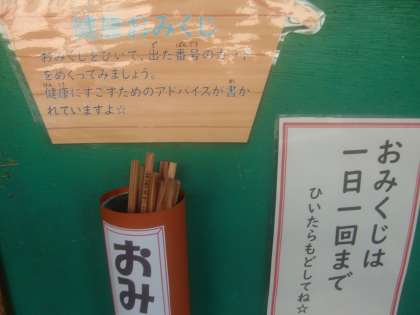 健康おみくじ
おみくじをひいて、出た番号の
をめくってみましょう。
健康にすごすためのアドバイスが書か
れていますよ☆
おみくじは
一日一回まで
ひいたらもどしてね☆
おみ